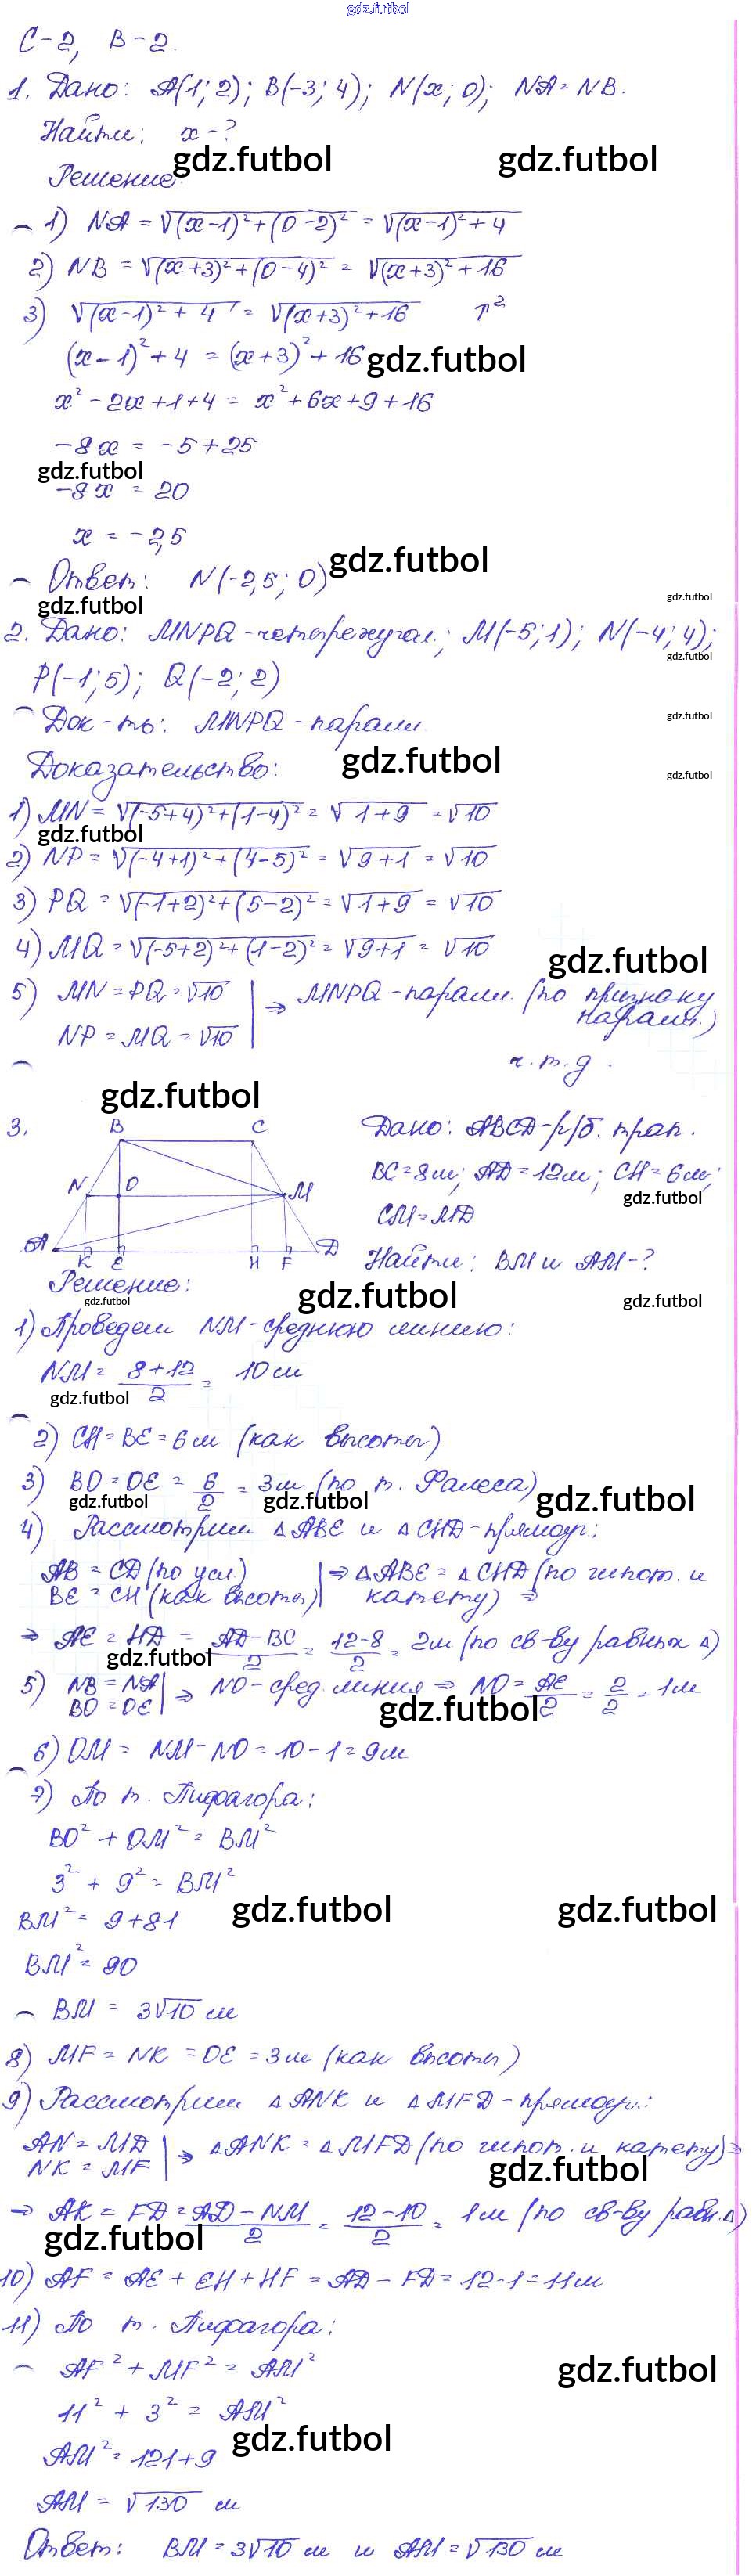 gdz.futbol
С-2, В-2.
1. Дано: A(1; 2); B(-3; 4); N(x; 0); NA = NB.
Найти: x - ?
gdz.futbol gdz.futbol
Решение:
1) NA = √(x-1)²+(0-2)² = √(x-1)²+4
2) NB = √(x+3)²+(0-4)² = √(x+3)²+16
3) √(x-1)²+4 = √(x+3)²+16 ↑²
(x-1)²+4 = (x+3)²+16
gdz.futbol
x²-2x+1+4 = x²+6x+9+16
-8x = -5+25
gdz.futbol
-8x = 20
x = -2,5
gdz.futbol
Ответ: N(-2,5; 0)
gdz.futbol gdz.futbol
2. Дано: MNPQ-четырехугол.; M(-5;1); N(-4;4);
gdz.futbol
P(-1;5); Q(-2;2)
gdz.futbol
Док-ть: MNPQ-паралл.
Доказательство:
gdz.futbol gdz.futbol
1) MN = √(-5+4)²+(1-4)² = √1+9 = √10
gdz.futbol
2) NP = √(-4+1)²+(4-5)² = √9+1 = √10
3) PQ = √(-1+2)²+(5-2)² = √1+9 = √10
4) MQ = √(-5+2)²+(1-2)² = √9+1 = √10
gdz.futbol
5) MN = PQ = √10 | ⇒ MNPQ-паралл. (по признаку
NP = MQ = √10 паралл.)
ч.т.д.
gdz.futbol
3. B C Дано: ABCD-р/б. трап.
BC=8см; AD=12см; CH=6см;
N O M gdz.futbol
CM=MD
A K E H F D Найти: BM и AM-?
Решение:
gdz.futbol gdz.futbol gdz.futbol
1) Проведем NM-среднюю линию:
NM = 8+12/2 = 10 см
gdz.futbol
2) CH=BE=6см (как высоты)
3) BO=OE = 6/2 = 3м (по т. Фалеса)
gdz.futbol gdz.futbol gdz.futbol
4) Рассмотрим △ABE и △CHD-прямоуг.:
AB = CD (по усл.) | ⇒ △ABE = △CHD (по гипот. и
BE = CH (как высоты) | катету) ⇒
⇒ AE = HD = AD-BC/2 = 12-8/2 = 2м (по св-ву равных △)
gdz.futbol
5) NB = NA | ⇒ NO-сред. линия ⇒ NO = AE/2 = 2/2 = 1м
BO = OE
gdz.futbol
6) OM = NM-NO = 10-1 = 9м
7) По т. Пифагора:
BO²+OM² = BM²
3²+9² = BM²
gdz.futbol gdz.futbol
BM² = 9+81
BM² = 90
BM = 3√10 см
8) MF = NK = OE = 3м (как высоты)
9) Рассмотрим △ANK и △MFD-прямоуг.:
AN = MD | ⇒ △ANK = △MFD (по гипот. и катету) ⇒
NK = MF
gdz.futbol
⇒ AK = FD = AD-NM/2 = 12-10/2 = 1м (по св-ву равн. △)
gdz.futbol
10) AF = AE+EH+HF = AD-FD = 12-1 = 11м
11) По т. Пифагора:
AF²+MF² = AM²
gdz.futbol
11²+3² = AM²
gdz.futbol
AM² = 121+9
AM = √130 м
Ответ: BM = 3√10 см и AM = √130 см